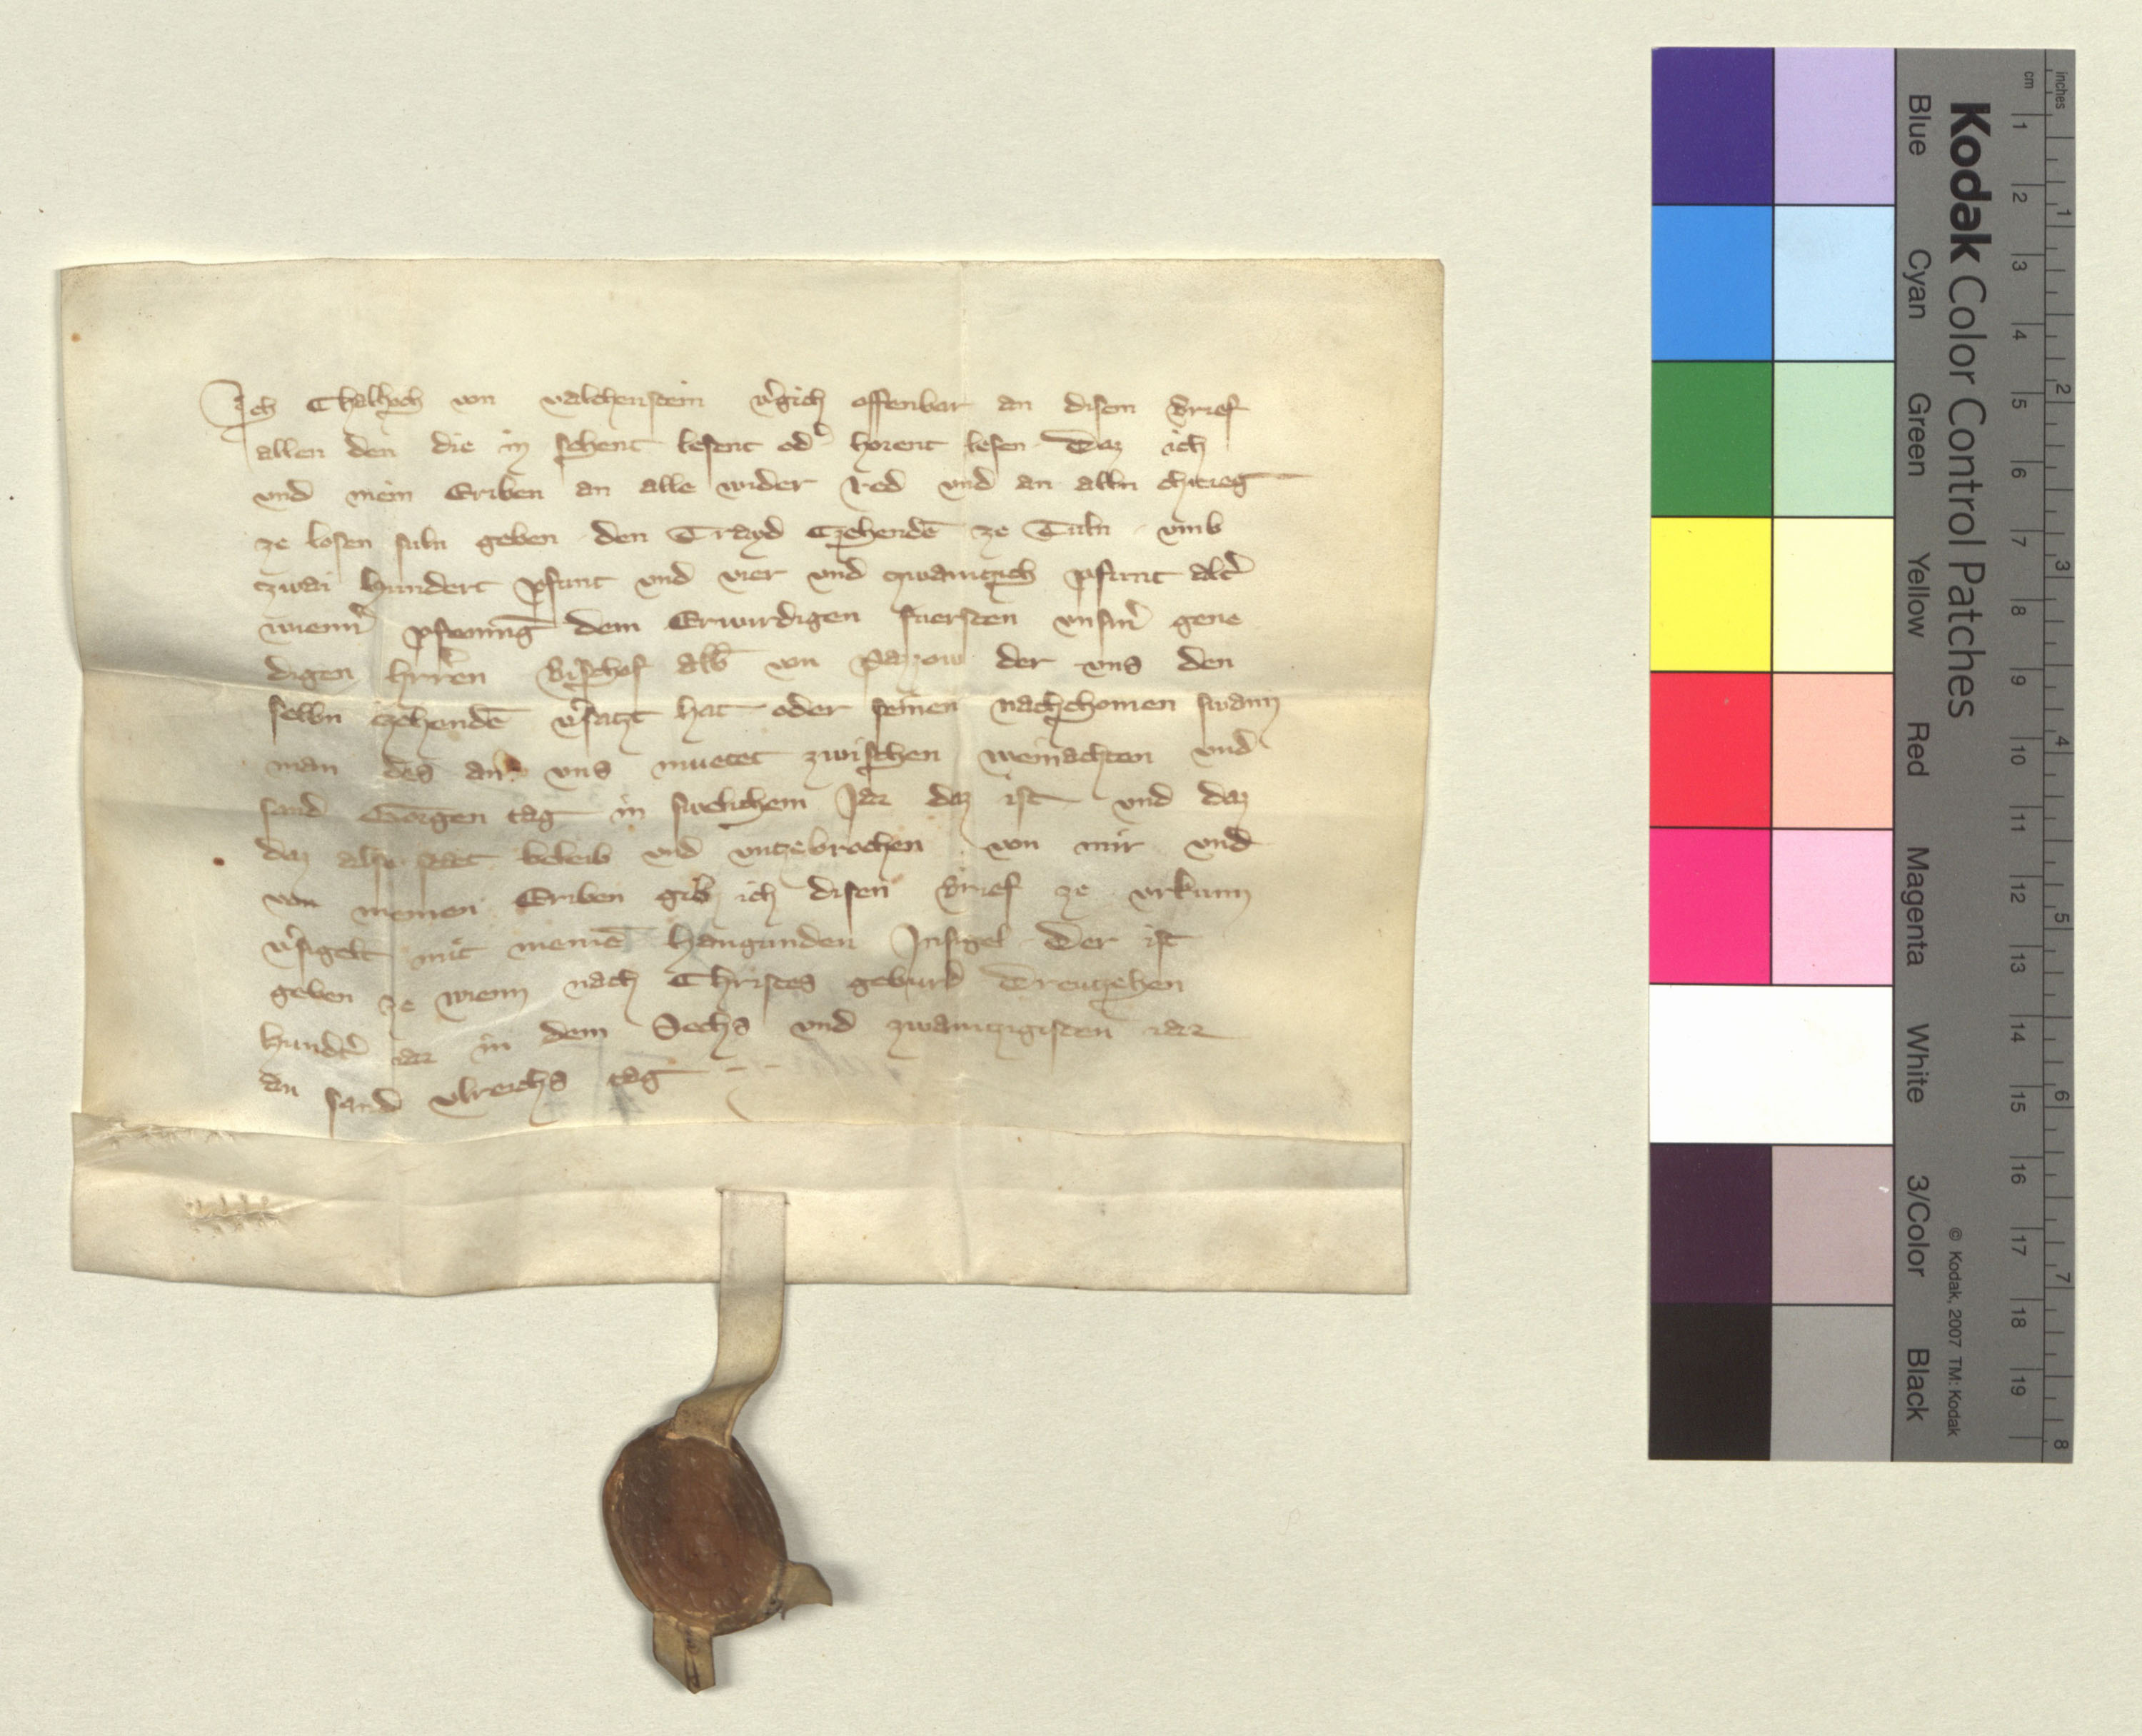 Ich Chalhoch von valchenstein v͛gich offenbar an disem brief
allen den die in sehent lesent od͛ horent lesen Daz ich
vnd mein Eriben an alle wider Red vnd an alln chrieg
ze losen suln geben den Trayd Czehendē ze Tuln vmb
zwai hundert pfunt vnd vier vnd zwaintzich pfunt alt͛
wienn͛ pfenning dem Erwirdigen fuersten vnsm͛ gene
digen hrren bischof alb̄ von Pazzow der vns den
selbn zehendē v͛satzt hat oder seinen nachchomen swann
man des an vns muetet zwischen weinachten vnd
sand Gorgen tag in swelichem Jar daz ist vnd daz
daz also stat beleib vnd vntzebrochen von mir vnd
von meinen Eriben gib ich disen brief ze vrkunn
v͛sigelt mit meinē hangunden Insigel Der ist
geben ze wienn nach Christes geburd Dreutzehen
hundt͛ iar in dem Sechs vnd zwaintzigisten iar
an sand vlreichs tag
Kodak Color Control Patches
Blue Cyan Green Yellow Red Magenta White 3/Color Black
© Kodak, 2007 TM: Kodak
cm 1 2 3 4 5 6 7 8 9 10 11 12 13 14 15 16 17 18 19
inches 1 2 3 4 5 6 7 8